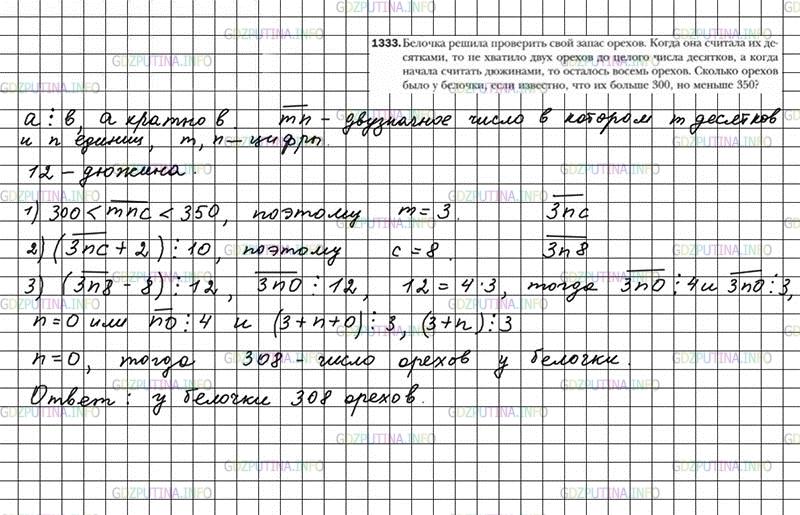 GDZPUTINA.INFO
1333. Белочка решила проверить свой запас орехов. Когда она считала их де-
сятками, то не хватило двух орехов до целого числа десятков, а когда
начала считать дюжинами, то осталось восемь орехов. Сколько орехов
было у белочки, если известно, что их больше 300, но меньше 350?
а ⋮ в, а кратно в   m̅n̅ - двузначное число в котором m десятков
и n единиц, m, n — цифры.
12 - дюжина.
1) 300 < m̅n̅c̅ < 350, поэтому m = 3.   3̅n̅c̅
2) (3̅n̅c̅ + 2) ⋮ 10, поэтому c = 8.   3̅n̅8̅
3) (3̅n̅8̅ - 8) ⋮ 12, 3̅n̅0̅ ⋮ 12, 12 = 4·3, тогда 3̅n̅0̅ ⋮ 4 и 3̅n̅0̅ ⋮ 3,
n = 0 или n̅0̅ ⋮ 4 и (3 + n + 0) ⋮ 3, (3 + n) ⋮ 3
n = 0, тогда 308 - число орехов у белочки.
Ответ: у белочки 308 орехов.